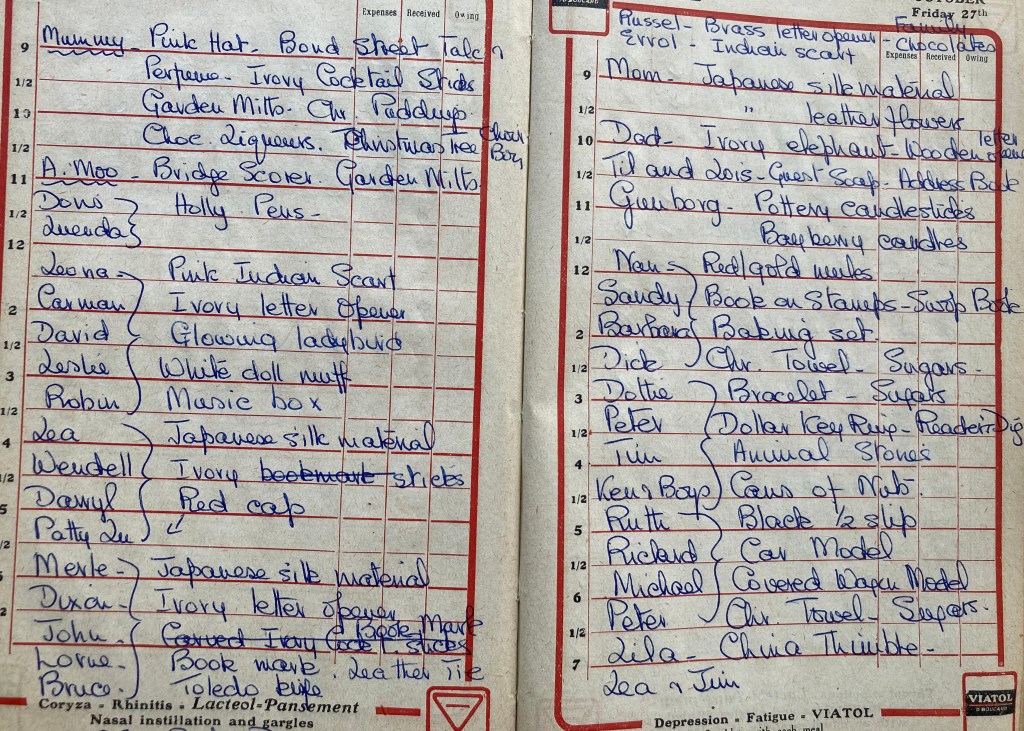 Expenses Received Owing
9 Mummy - Pink Hat - Bond Street Talc
1/2 Perfume - Ivory Cocktail Sticks
10 Garden Mitts. Chr. Pudding.
1/2 Choc Liqueurs. Christmas Tree Choir Boy
11 A. Moo - Bridge Scorer. Garden Mitts.
1/2 Doris Holly Pens -
12
Leona - Pink Indian Scarf
2 Carman Ivory letter opener
1/2 David Glowing ladybird
3 Leslie White doll muff
1/2 Robin Music box
4 Lea Japanese silk material
1/2 Wendell Ivory bookmark sticks
5 Darryl Red cap
1/2 Patty Lu
Merle - Japanese silk material
Dixon - Ivory letter opener
Book Mark
John Carved Ivory Cock t. sticks
Lorne - Book mark. Leather Tie
Bruce - Toledo knife
Coryza - Rhinitis - Lacteol-Pansement
Nasal instillation and gargles
OCTOBER
Friday 27th
Family
Russel - Brass letter opener - Chocolates
Errol - Indian scarf
Expenses Received Owing
9 Mom - Japanese silk material
1/2 " leather flowers
10 Dad - Ivory elephant - Wooden letter opener
1/2 Til and Lois - Guest Soap - Address Book
11 Gunborg - Pottery candlesticks
1/2 Bayberry candles
12 Nan - Red/gold mules
Sandy Book on Stamps - Swop Book
2 Barbara Baking set.
1/2 Dick Chr. Towel - Sugars -
3 Dottie Bracelet - Sugars
1/2 Peter Dollar Key Ring - Reader's Dig
4 Tim Animal Stones
1/2 Ken & Boys Cans of Nuts.
5 Ruth - Black 1/2 slip
1/2 Richard Car Model
6 Michael Covered Wagon Model
Peter - Chr. Towel - Sugars -
1/2 Lila - China Thimble -
7
Lea & Jim
VIATOL
Depression - Fatigue - VIATOL